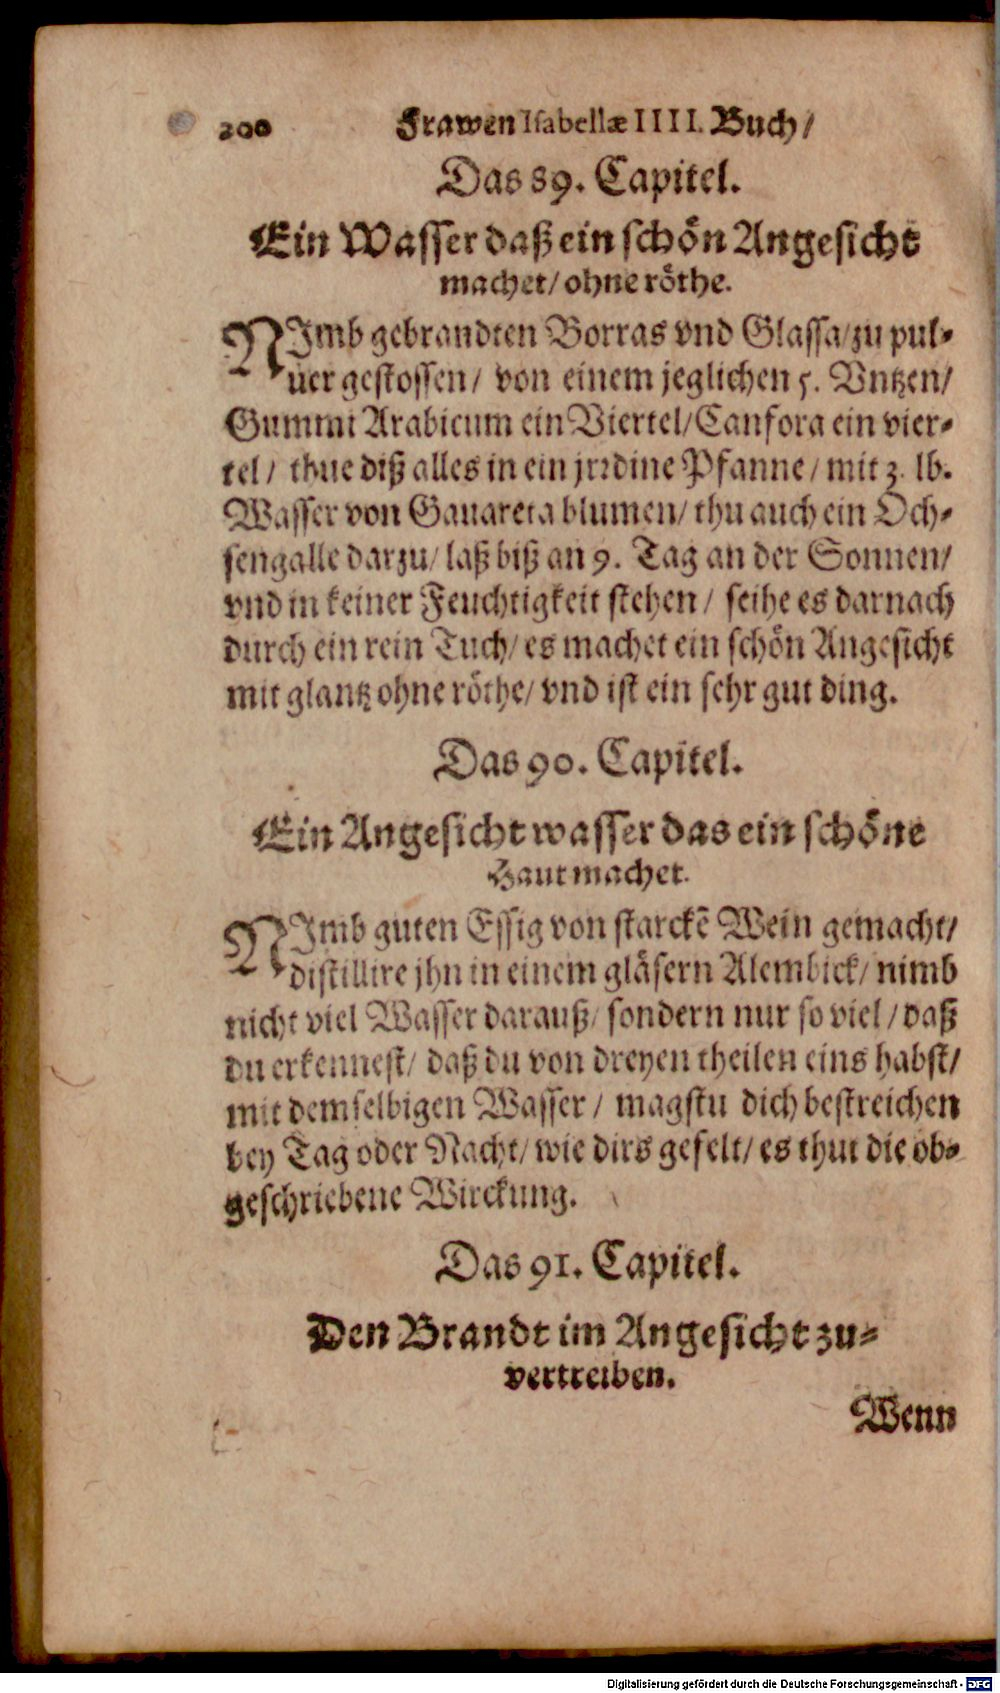 200 Frawen Isabellæ IIII. Buch/
Das 89. Capitel.
Ein Wasser daß ein schön Angesicht
machet/ ohne röthe.
NImb gebrandten Borras vnd Glassa/ zu pul-
uer gestossen/ von einem jeglichen 5. Vntzen/
Gummi Arabicum ein Viertel/ Canfora ein vier-
tel/ thue diß alles in ein jrrdine Pfanne/ mit 3. lb.
Wasser von Gauareta blumen/ thu auch ein Och-
sengalle darzu/ laß biß an 9. Tag an der Sonnen/
vnd in keiner Feuchtigkeit stehen/ seihe es darnach
durch ein rein Tuch/ es machet ein schön Angesicht
mit glantz ohne röthe/ vnd ist ein sehr gut ding.
Das 90. Capitel.
Ein Angesicht wasser das ein schöne
Haut machet.
NImb guten Essig von starckē Wein gemacht/
distillire jhn in einem gläsern Alembick/ nimb
nicht viel Wasser darauß/ sondern nur so viel/ daß
du erkennest/ daß du von dreyen theilen eins habst/
mit demselbigen Wasser/ magstu dich bestreichen
bey Tag oder Nacht/ wie dirs gefelt/ es thut die ob-
geschriebene Wirckung.
Das 91. Capitel.
Den Brandt im Angesicht zu-
vertreiben.
Wenn
Digitalisierung gefördert durch die Deutsche Forschungsgemeinschaft - DFG